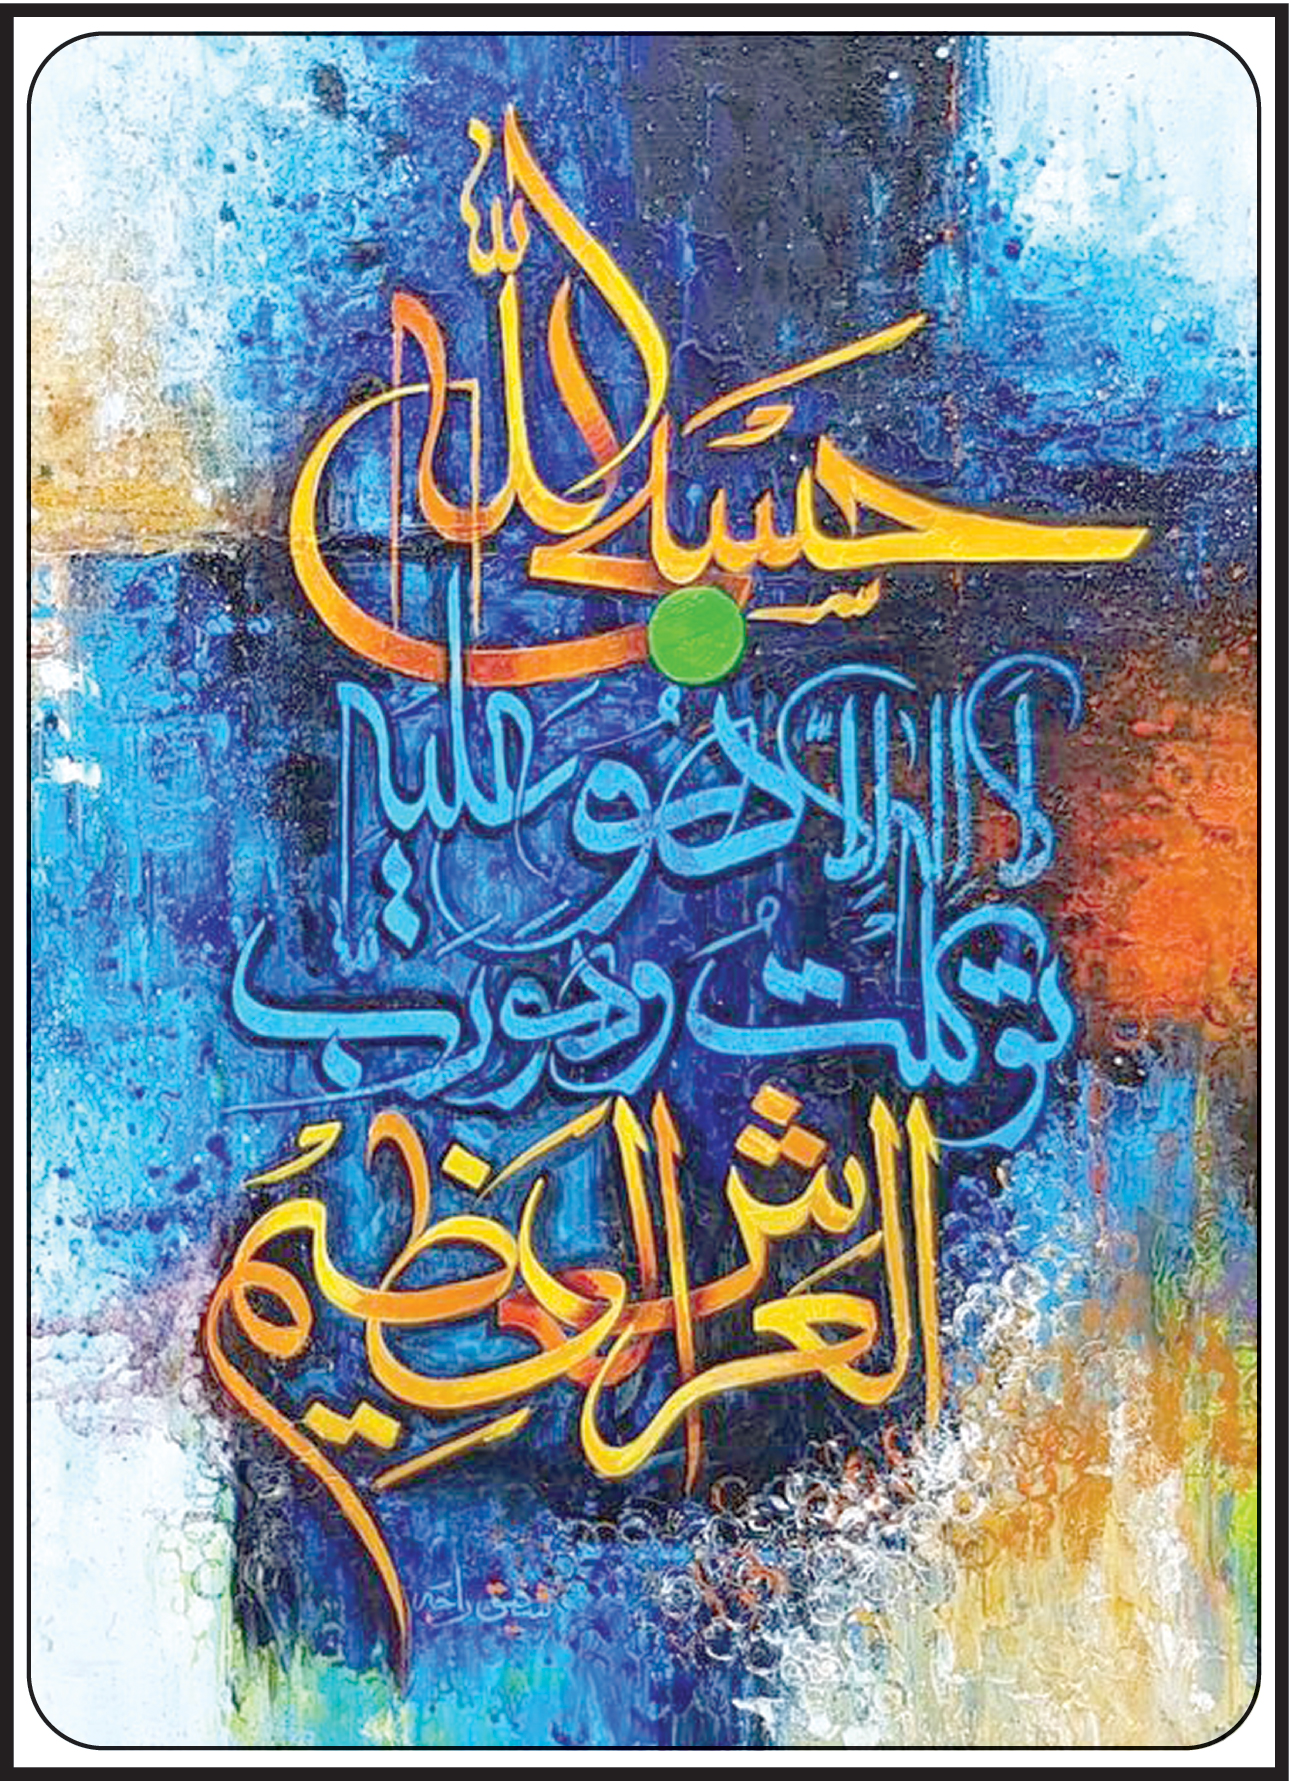 حَسْبِيَ اللّٰهُ
لَا إِلٰهَ إِلَّا هُوَ عَلَيْهِ
تَوَكَّلْتُ وَهُوَ رَبُّ
الْعَرْشِ الْعَظِيمِ